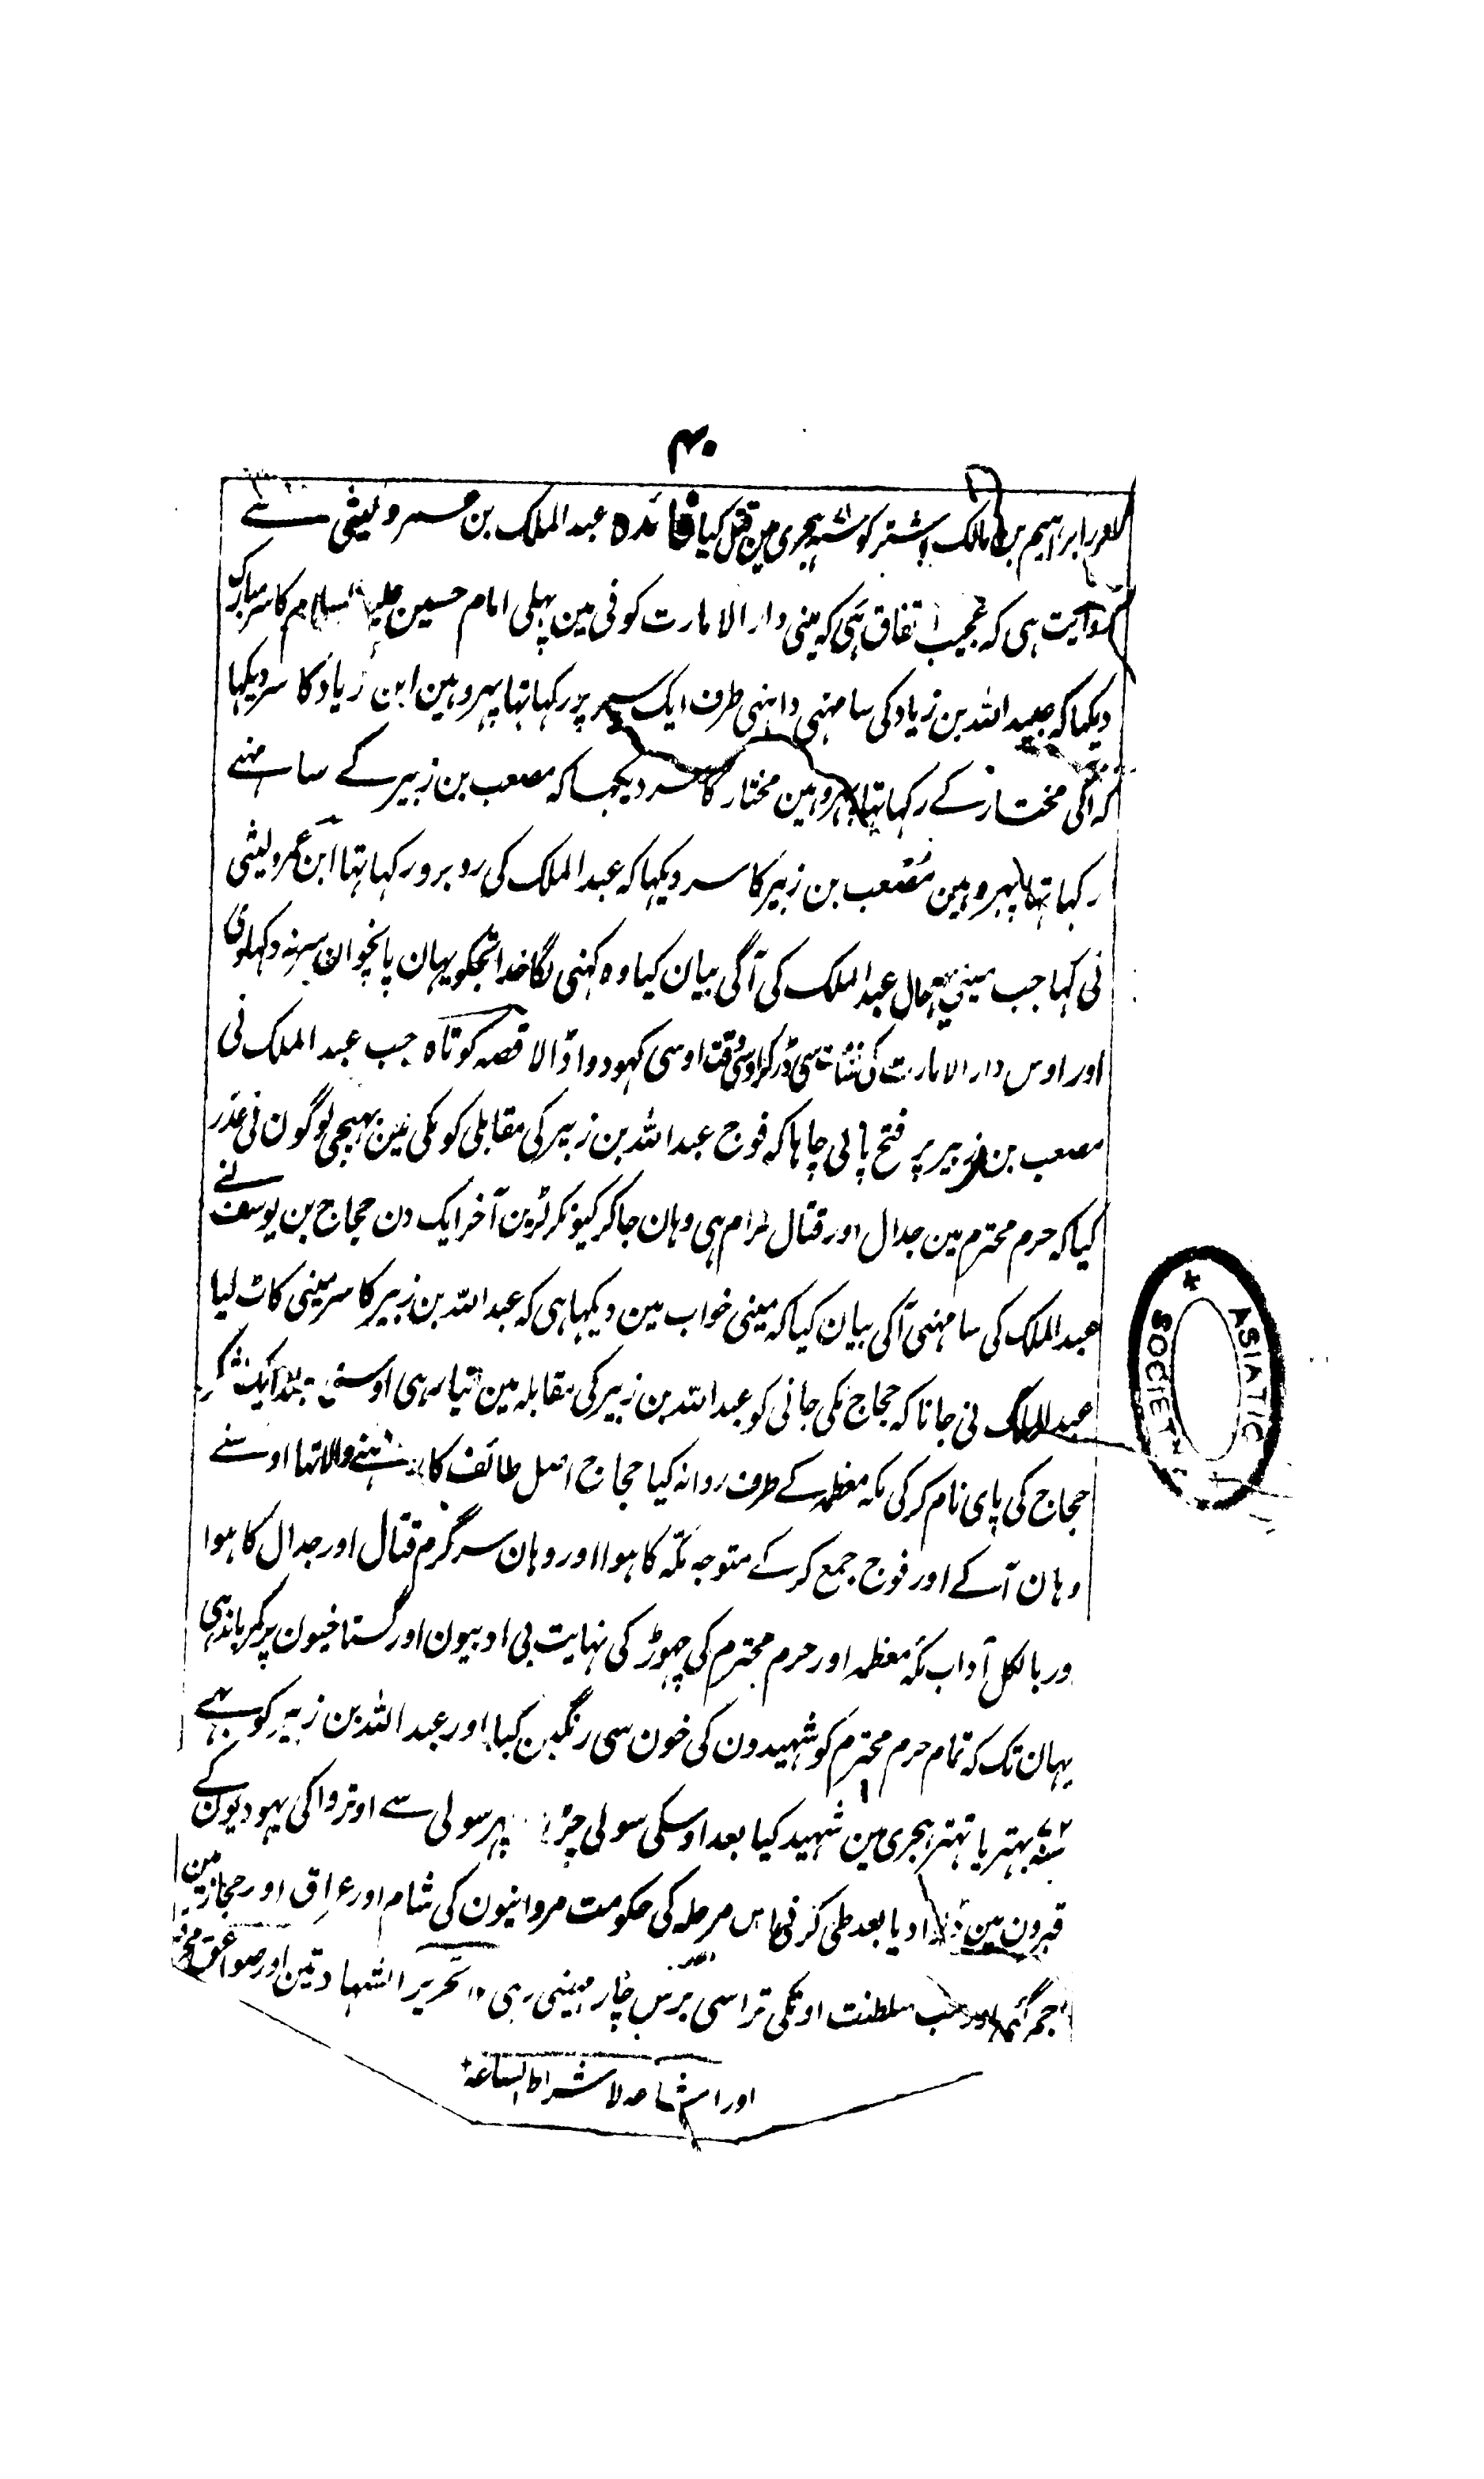 ۴۰
اور ابراہیم بن مالک اشتر کو سنہ ہجری مین قتل کیا فائدہ عبد الملک بن عمر و لیثی سے
روایت ہی کہ عجیب اتفاق ہی کہ مینی دار الامارت کوفی مین پہلی امام حسین علیہ السلام کا سر مبارک
دیکہا کہ عبید اللہ بن زیاد کی سامہنی داہنی طرف ایک سپر پر رکہا تہا پہر وہین ابن زیاد کا سر دیکہا
کہ آگی مختار کے رکہا تہا پہر وہین مختار کا سر دیکہا کہ مصعب بن زبیر کے سامہنے
رکہا تہا پہر وہین مصعب بن زبیر کا سر دیکہا کہ عبد الملک کی روبرو رکہا تہا ابن عمرو لیثی
نی کہا جب مینی یہ حال عبد الملک کی آگی بیان کیا وہ کہنی لگا خدا تجکو یہان پانچوان سر نہ دکہلاوی
اور اوس دار الامارت کی سی ڈر کر اوسی وقت اوسی کہودوا ڈالا قصہ کوتاہ جب عبد الملک نی
مصعب بن زبیر پر فتح پائی چاہا کہ فوج عبد اللہ بن زبیر کی مقابلی کو مکی مین بہیجی لوگون نی عذر
کیا کہ حرم محترم مین جدال اور قتال حرام ہی وہان جا کر کیونکر لڑین آخر ایک دن حجاج بن یوسف نے
عبد الملک کی سامہنی آ کی بیان کیا کہ مینی خواب مین دیکہا ہی کہ عبد اللہ بن زبیر کا سر مینی کاٹ لیا
عبد الملک نی جانا کہ حجاج مکی جانی کو عبد اللہ بن زبیر کی مقابلہ مین تیار ہی اوسنی ایک لشکر
حجاج کی پای نام کر کی مکہ معظمہ کے طرف روانہ کیا حجاج اصل طائف کا رہنے والا تہا اوسنے
وہان آ کے اور فوج جمع کر کے متوجہ مکہ کا ہوا اور وہان سرگرم قتال اور جدال کا ہوا
اور بالکل آداب مکہ معظمہ اور حرم محترم کی چہوڑ کی نہایت بی ادبیون اور گستاخیون پر کمر باندہی
یہان تک کہ تمام حرم محترم کو شہیدون کی خون سی رنگین کیا اور عبد اللہ بن زبیر کو بہے
سنہ ۷۲ بہتر یا تہتر ہجری مین شہید کیا بعد اوسکی سولی چڑہا پہر سولی سے اوتروا کی یہودیون کے
قبرون مین ڈلوا دیا بعد طی کرنی اس مرحلہ کی حکومت مروانیون کی شام اور عراق اور حجاز مین
جم گئی اور سب سلطنت اونکی تراسی برس چار مہینی رہی ۱۲ تحریر الشہادتین اور صواعق محرقہ
اور اشاعہ لاشراط الساعۃ
ASIATIC SOCIETY